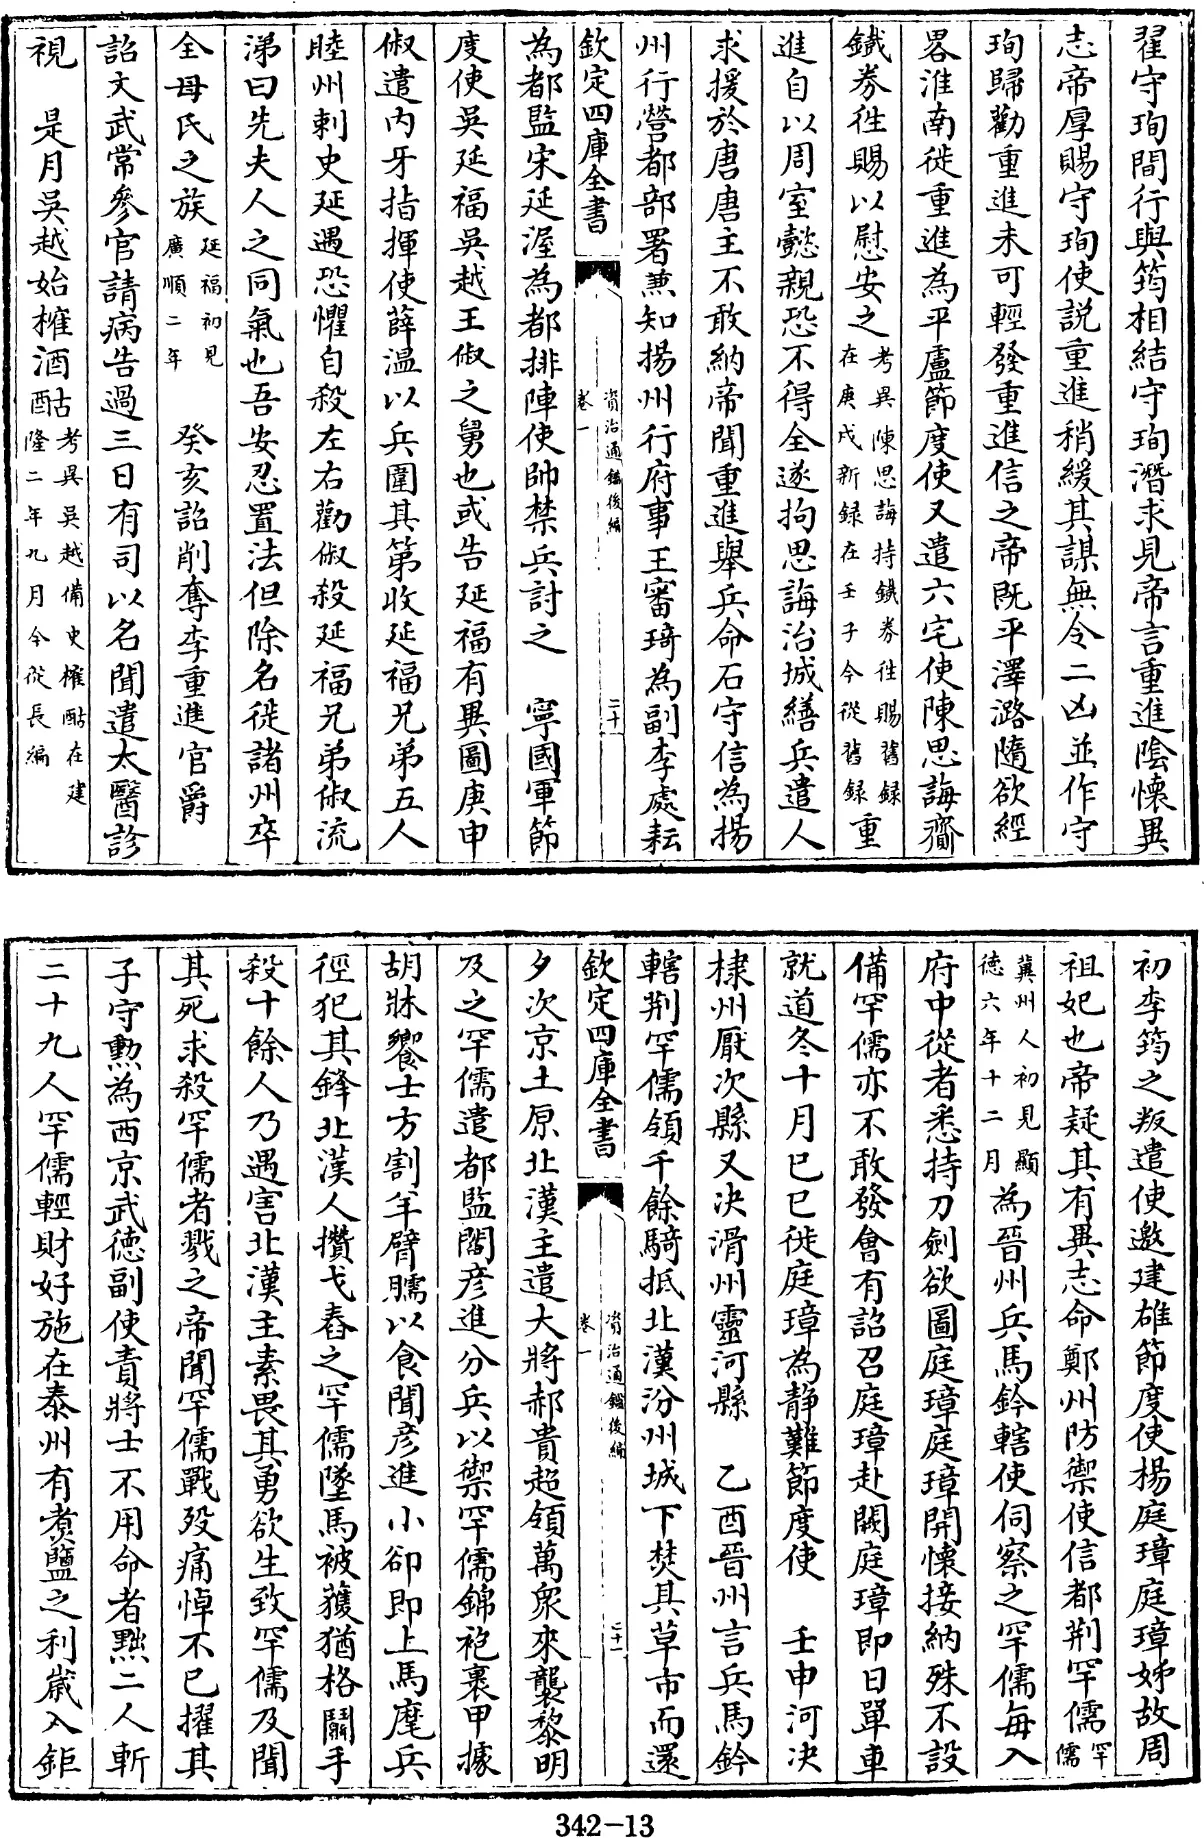 翟守珣間行與筠相結守珣潛求見帝言重進陰懷異
志帝厚賜守珣使説重進稍緩其謀無令二凶並作守
珣歸勸重進未可輕發重進信之帝既平澤潞隨欲經
畧淮南徙重進為平盧節度使又遣六宅使陳思誨齎
鐵券徃賜以慰安之考異陳思誨持鐵券徃賜舊録在庚戌新録在壬子今從舊録重
進自以周室懿親恐不得全遂拘思誨治城繕兵遣人
求援於唐唐主不敢納帝聞重進舉兵命石守信為揚
州行營都部署兼知揚州行府事王審琦為副李處耘
欽定四庫全書
資治通鑑後編
卷一
二十
為都監宋延渥為都排陣使帥禁兵討之　寧國軍節
度使吳延福吳越王俶之舅也或告延福有異圖庚申
俶遣内牙指揮使薛温以兵圍其第收延福兄弟五人
睦州刺史延遇恐懼自殺左右勸俶殺延福兄弟俶流
涕曰先夫人之同氣也吾安忍置法但除名徙諸州卒
全母氏之族延福初見廣順二年　癸亥詔削奪李重進官爵
詔文武常參官請病告過三日有司以名聞遣太醫診
視　是月吳越始榷酒酤考異吳越備史榷酤在建隆二年九月今從長編
初李筠之叛遣使邀建雄節度使楊庭璋庭璋姊故周
祖妃也帝疑其有異志命鄭州防禦使信都荆罕儒罕儒
冀州人初見顯德六年十二月為晉州兵馬鈐轄使伺察之罕儒每入
府中從者悉持刀劍欲圖庭璋庭璋開懷接納殊不設
備罕儒亦不敢發會有詔召庭璋赴闕庭璋即日單車
就道冬十月已巳徙庭璋為静難節度使　壬申河決
棣州厭次縣又決滑州靈河縣　乙酉晉州言兵馬鈐
轄荆罕儒領千餘騎抵北漢汾州城下焚其草市而還
欽定四庫全書
資治通鑑後編
卷一
二十一
夕次京土原北漢主遣大將郝貴超領萬衆來襲黎明
及之罕儒遣都監閻彦進分兵以禦罕儒錦袍裹甲據
胡牀饗士方割羊臂臑以食聞彦進小卻即上馬麾兵
徑犯其鋒北漢人攢戈舂之罕儒墜馬被獲猶格鬭手
殺十餘人乃遇害北漢主素畏其勇欲生致罕儒及聞
其死求殺罕儒者戮之帝聞罕儒戰殁痛悼不已擢其
子守勲為西京武德副使責將士不用命者黜二人斬
二十九人罕儒輕財好施在泰州有煑鹽之利歲入鉅
342-13